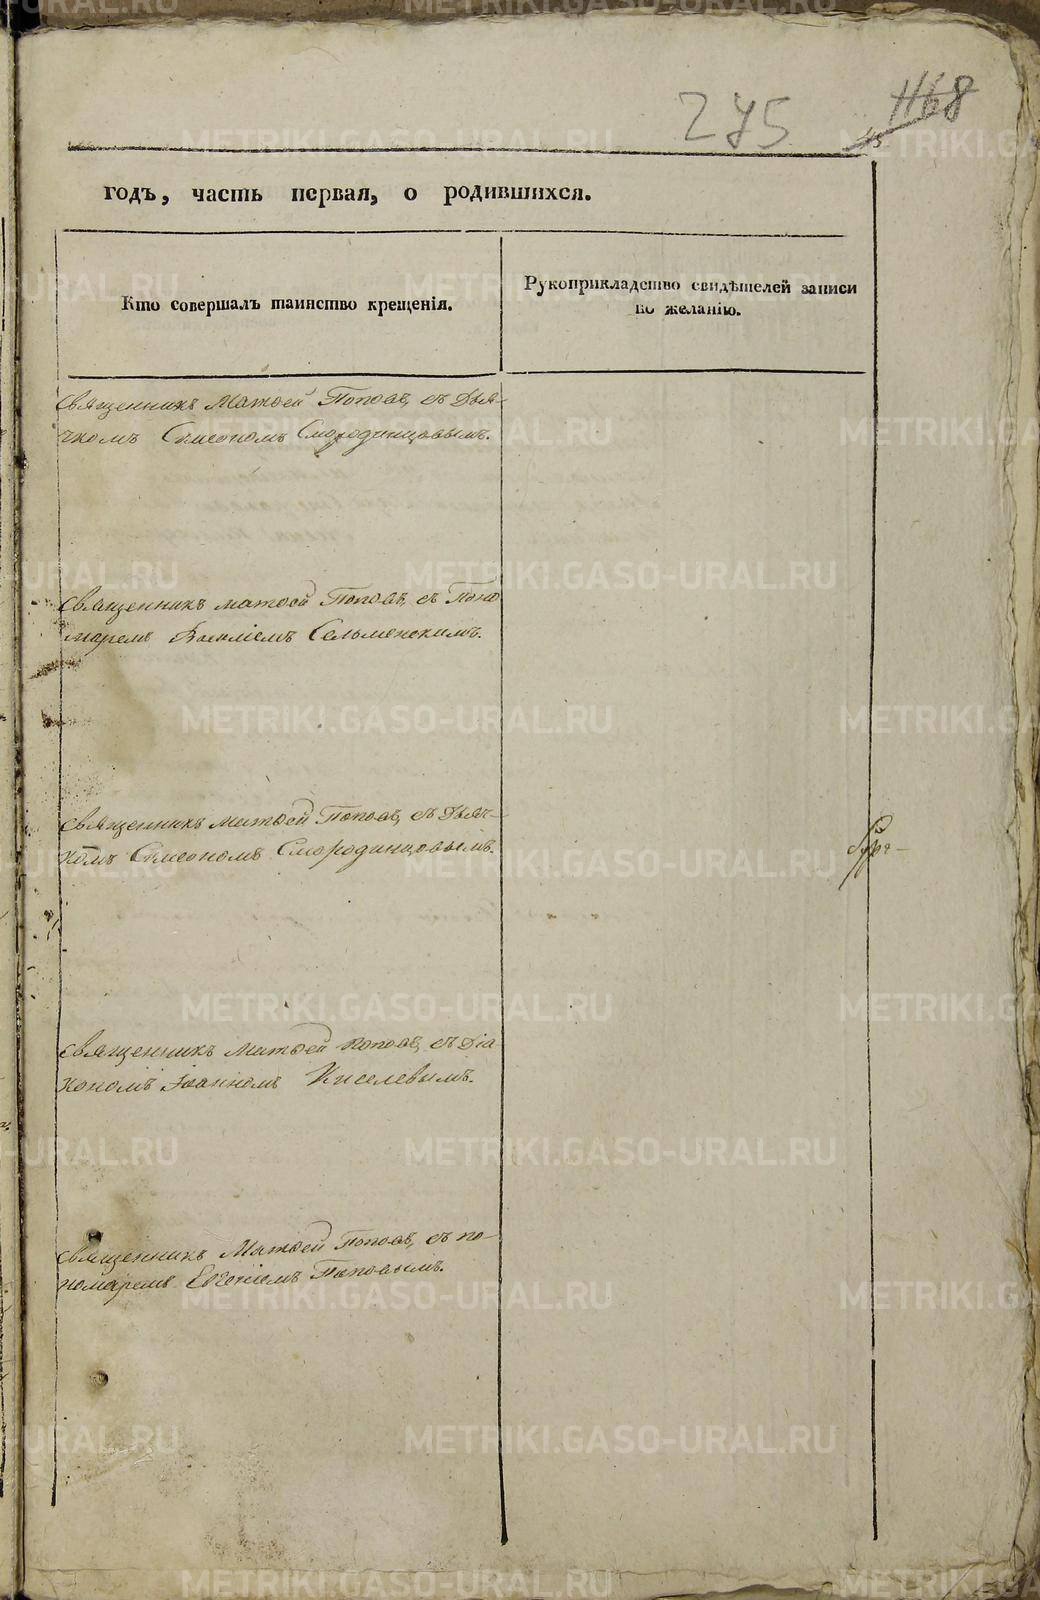 275
1168
годъ, часть первая, о родившихся.
Кто совершалъ таинство крещенія.
Рукоприкладство свидѣтелей записи
по желанію.
Священникъ Матѳей Поповъ, съ Дья-
чкомъ Симеономъ Смородинцовымъ.
Священникъ Матѳей Поповъ, съ Поно
маремъ Василіемъ Сельменскимъ.
Священникъ Матѳей Поповъ, съ Дьяч-
комъ Симеономъ Смородинцовымъ.
Священникъ Матѳей Поповъ, съ Діа
кономъ Іоанномъ Киселевымъ.
Священникъ Матѳей Поповъ, съ по-
номаремъ Поповымъ.
METRIKI.GASO-URAL.RU